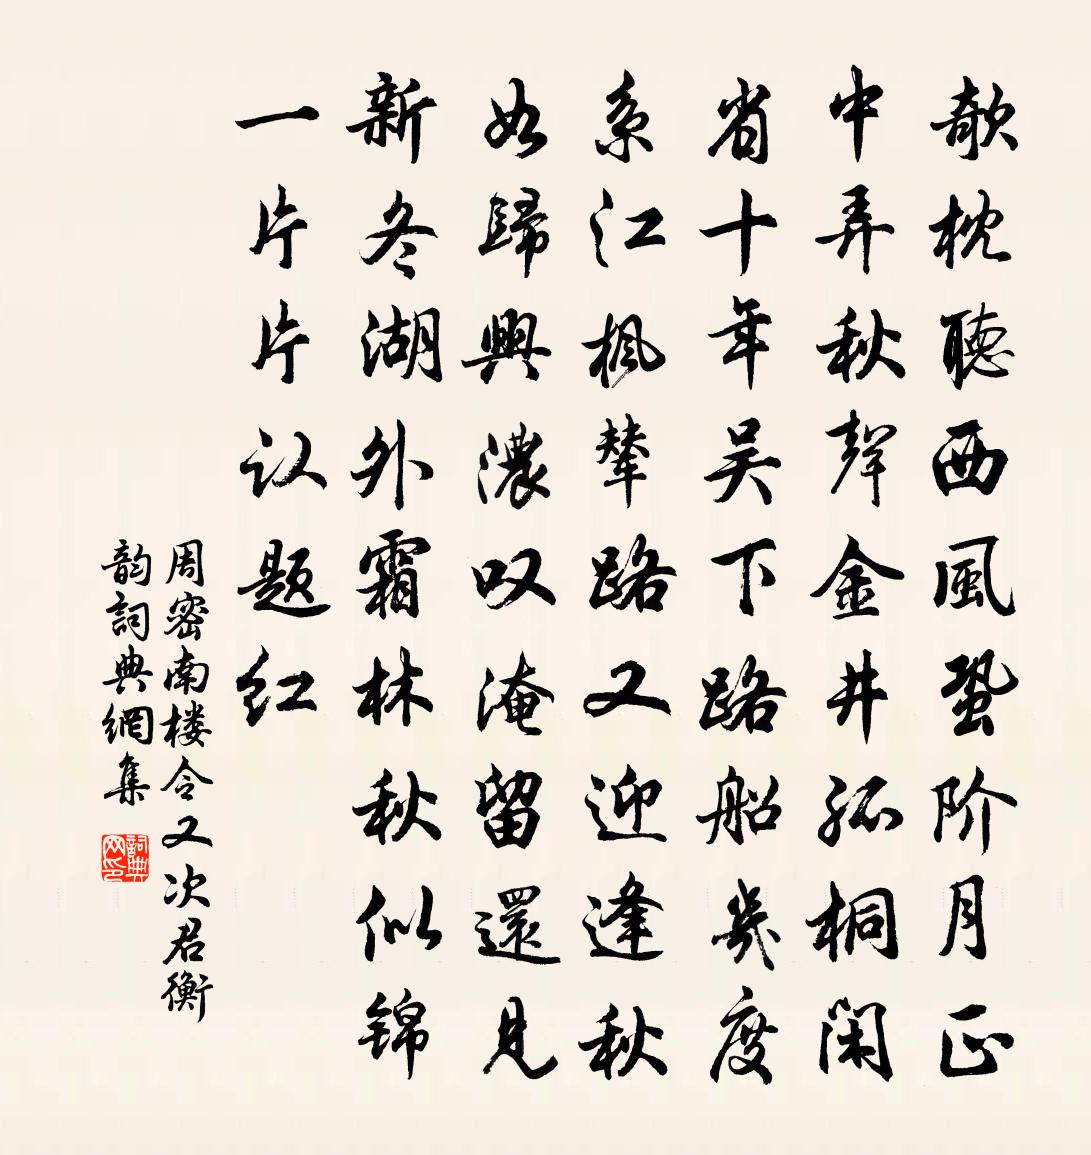 欹枕聽西風蛩阶月正
中弄秋聲金井孤桐闲
省十年吴下路船幾度
系江楓輦路又迎逢秋
如歸興濃叹淹留還見
新冬湖外霜林秋似锦
一片片认题红
周密南楼令又次君衡
韵詞典網集
詞典网印